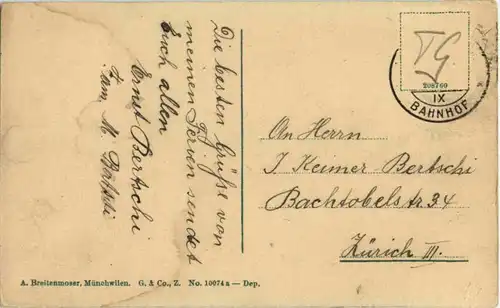 Die besten Grüße von
meinen Ferien sendet
Euch allen
Ernst Bertschi
Fam. M.
TG
208760
IX
BAHNHOF
An Herrn
J Keimer Bertschi
Bachtobelstr. 34
Zürich III.
A. Breitenmoser, Münchwilen. G. & Co., Z. No. 10074 a — Dep.